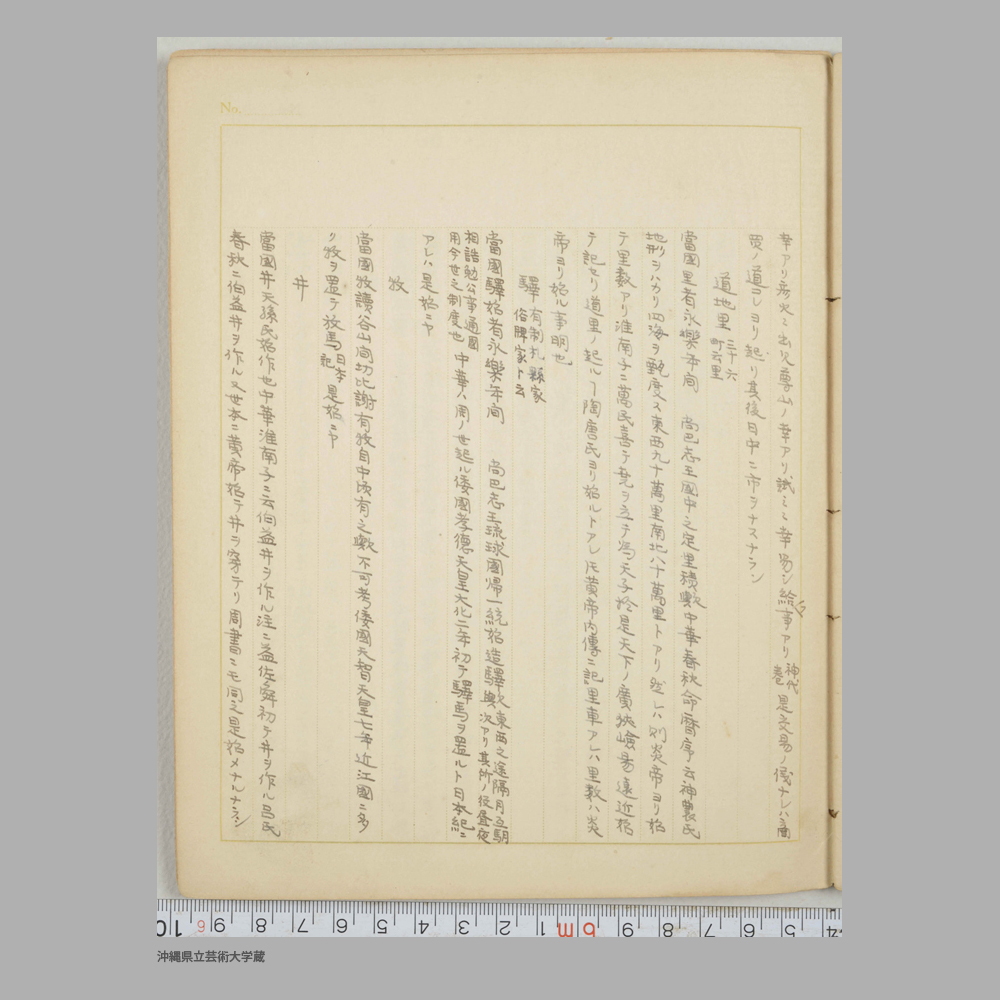 幸アリ彦火々出見尊山ノ幸アリ試ニ幸易シ給フ事アリ神代巻是交易ノ儀ナレハ商
買ノ道コレヨリ起リ其後日中ニ市ヲナスナラン
道地里 三十六町云里
當國里者永樂年間 尚巴志王國中之定里積歟中華春秋命暦序云神農氏
地形ヲハカリ四海ヲ甄度ス東西九十萬里南北八十萬里トアリ然レハ則炎帝ヨリ始
テ里數アリ淮南子ニ萬民喜テ堯ヲ立テ爲天子於是天下ノ廣狹嶮易遠近始
テ記セリ道里ノ起ルヿ陶唐氏ヨリ始ルトアレ𪜈黄帝内傳ニ記里車アレハ里數ハ炎
帝ヨリ始ル事明也
驛 有制札縣家俗脾家ト云
當國驛始者永樂年間 尚巴志王琉球國帰一統始造驛歟東西之遠隔月互朝
次アリ其所ノ役昼夜
相詰勉公事通國
用今世之制度也 中華ハ周ノ世起ル倭國孝德天皇大化二年初テ驛馬ヲ置ルト日本紀ニ
アレハ是始ニヤ
牧
當國牧讀谷山間切比謝有牧自中頃有之歟不可考倭國天智天皇七年近江國ニ多
ク牧ヲ置テ放馬日本紀是始ニヤ
井
當國井天孫氏始作也中華淮南子ニ云伯益井ヲ作ル注ニ益佐舜初テ井ヲ作ル呂氏
春秋ニ伯益井ヲ作ル又世本ニ黄帝始テ井ヲ穿テリ周書ニモ同之是始メナルナラン
No.
10 9 8 7 6 5 4 3 2 1 m 9 8 7 6 5 4
沖縄県立芸術大学蔵